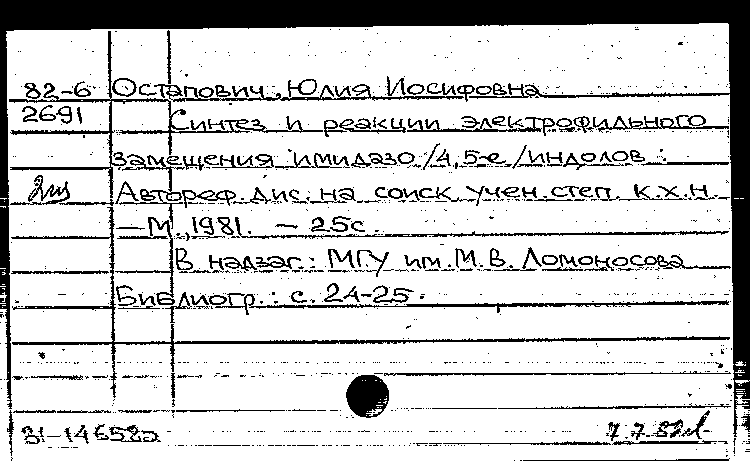 82-6 Остапович, Юлия Иосифовна
2691 Синтез и реакции электрофильного
замещения имидазо/4,5-е/индолов :
Автореф. дис. на соиск. учен. степ. к.х.н.
— М., 1981. — 25с.
В надзаг.: МГУ им. М.В. Ломоносова
Библиогр.: с. 24-25.
31-14658а 7.7.82